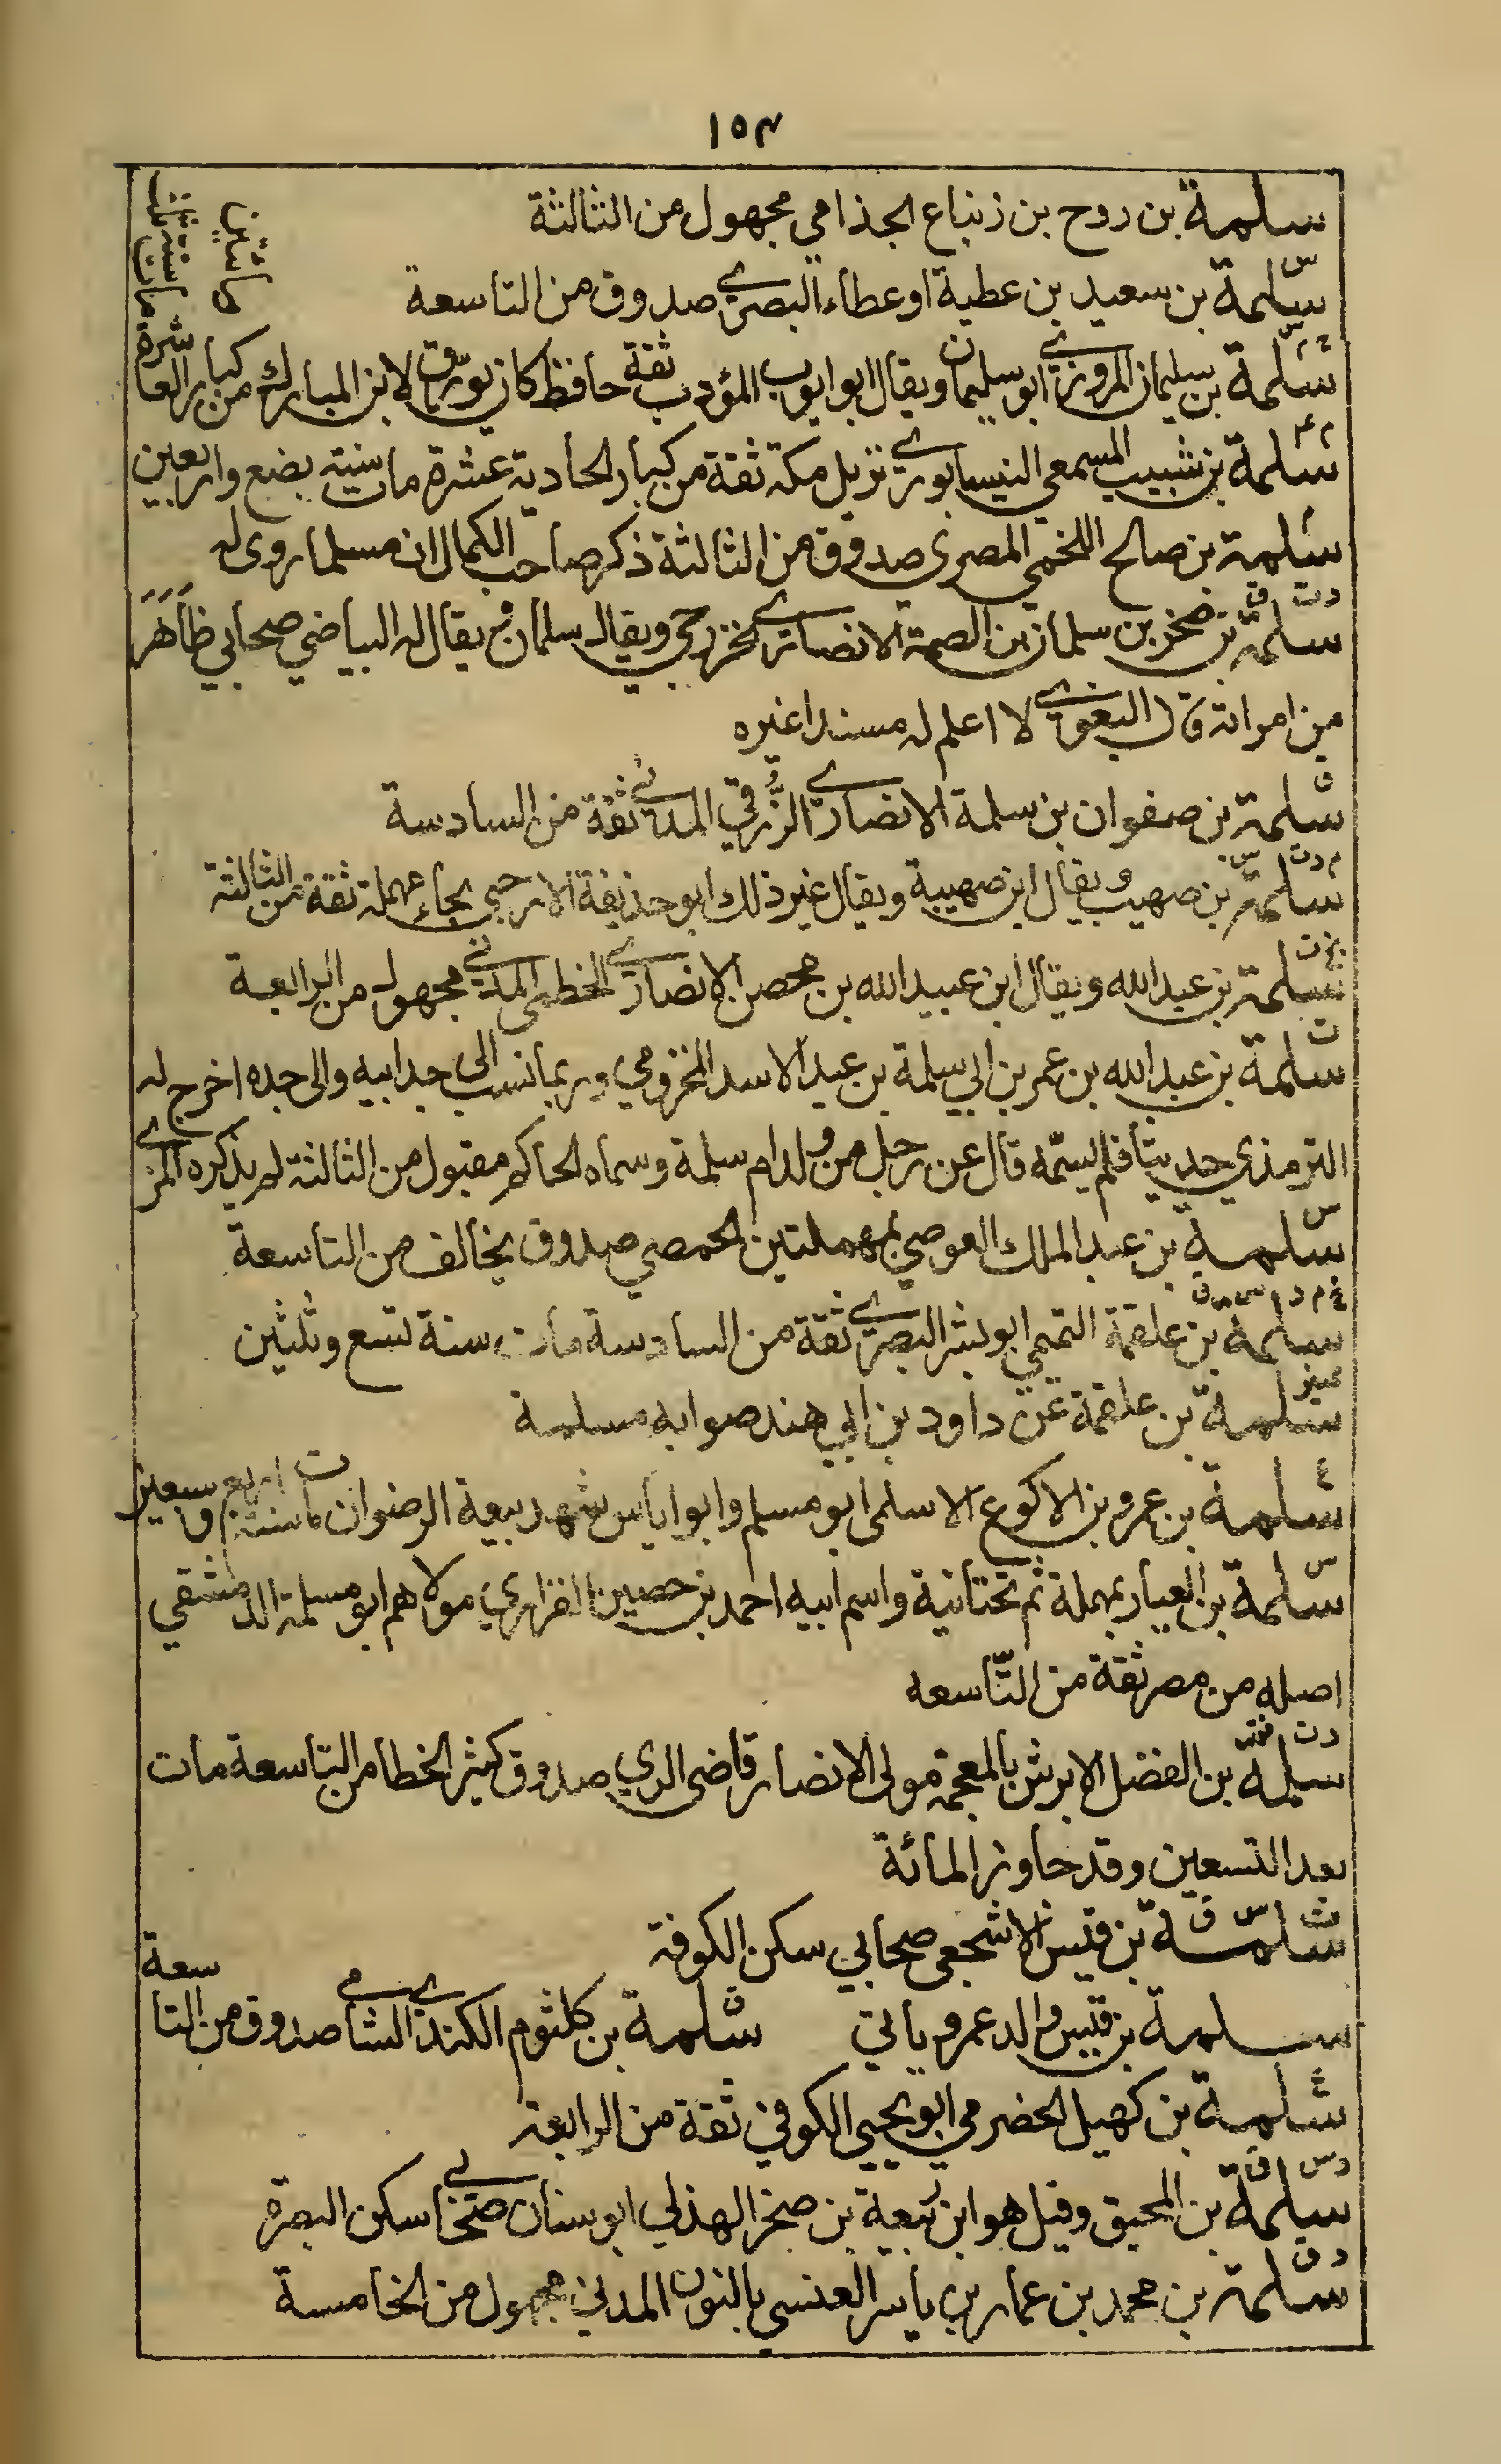 ١٥٣
سلمة بن روح بن زنباع الجذامي مجهول من الثالثة
س سلمة بن سعيد بن عطية او عطاء البصري صدوق من التاسعة
سلمة بن سليمان المروزي ابو سليمان ويقال ابو ايوب المؤدب ثقة حافظ كان يورق لابن المبارك من كبار العاشرة
م ٤ سلمة بن شبيب المسمعي النيسابوري نزيل مكة ثقة من كبار الحادية عشرة مات سنة بضع واربعين
م سلمة بن صالح اللخمي المصري صدوق من الثالثة ذكر صاحب الكمال ان مسلما روى له
د ت ق سلمة بن صخر بن سلمان بن الصمة الانصاري الخزرجي ويقال سلمان يقال له البياضي صحابي ظاهر
من امراته قال البغوي لا اعلم له مسندا غيره
ق سلمة بن صفوان بن سلمة الانصاري الزرقي المدني ثقة من السادسة
م د ت س سلمة بن صهيب ويقال ابن صهيبة ويقال غير ذلك ابو حذيفة الارحبي بحاء مهملة ثقة من الثالثة
بخ ت سلمة بن عبد الله ويقال ابن عبيد الله بن محصن الانصاري الخطمي المدني مجهول من الرابعة
ت سلمة بن عبد الله بن عمر بن ابي سلمة بن عبد الاسد المخزومي وربما نسب الى جد ابيه والى جده اخرج له
الترمذي حديثا فلم يسمه قال عن رجل من ولد ام سلمة وسماه الحاكم مقبول من الثالثة لم يذكره المزي
س سلمة بن عبد الملك العوصي بمهملتين الحمصي صدوق يخالف من التاسعة
خ م د س ق سلمة بن علقمة التميمي ابو بشر البصري ثقة من السادسة مات سنة تسع وثلثين
تمييز سلمة بن علقمة عن داود بن ابي هند صوابه مسلمة
ع سلمة بن عمرو بن الاكوع الاسلمي ابو مسلم وابو اياس شهد بيعة الرضوان مات سنة اربع وسبعين
س سلمة بن العيار بمهملة ثم تحتانية واسم ابيه احمد بن حصين الفزاري مولاهم ابو مسلمة الدمشقي
اصله من مصر ثقة من التاسعه
د ت فق سلمة بن الفضل الابرش بالمعجمة مولى الانصار قاضي الري صدوق كثير الخطا من التاسعة مات
بعد التسعين وقد جاوز المائة
ت س ق سلمة بن قيس الاشجعي صحابي سكن الكوفة
سلمة بن قيس والد عمرو ياتي سلمة بن كلثوم الكندي الشامي صدوق من التاسعة
ع سلمة بن كهيل الحضرمي ابو يحيى الكوفي ثقة من الرابعة
د س ق سلمة بن المحبق وقيل هو ابن ربيعة بن صخر الهذلي ابو سنان صحابي سكن البصرة
د ق سلمة بن محمد بن عمار بن ياسر العنسي بالنون المدني مجهول من الخامسة